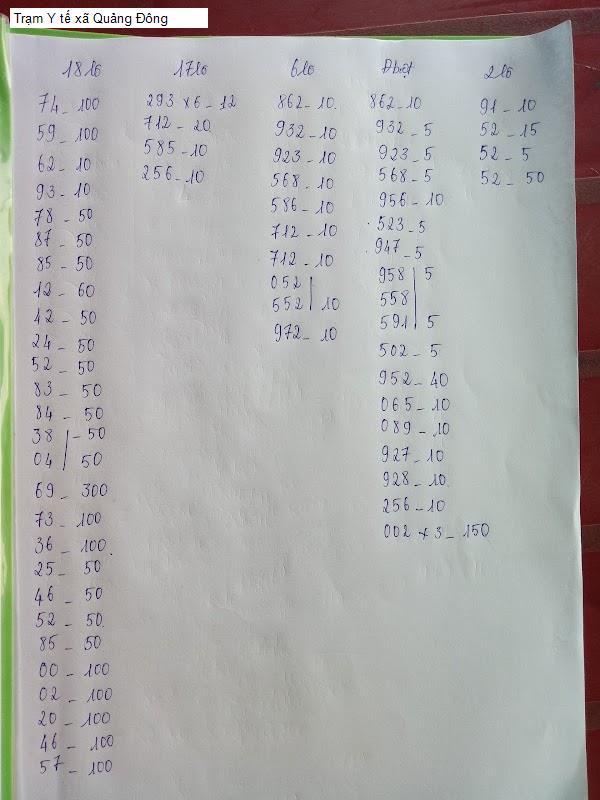 Trạm Y tế xã Quảng Đông
18 lô
74 - 100
59 - 100
62 - 10
93 - 10
78 - 50
87 - 50
85 - 50
12 - 60
42 - 50
24 - 50
52 - 50
83 - 50
84 - 50
38 - 50
04 50
69 - 300
73 - 100
36 - 100
25 - 50
46 - 50
52 - 50
85 - 50
00 - 100
02 - 100
20 - 100
46 - 100
57 - 100
17 lô
293 x 6 - 12
712 - 20
585 - 10
256 - 10
6 lô
862 - 10
932 - 10
923 - 10
568 - 10
586 - 10
712 - 10
712 - 10
052
552 10
972 - 10
Đ biệt
862 - 10
932 - 5
923 - 5
568 - 5
956 - 10
523 - 5
947 - 5
958 5
558
591 5
502 - 5
952 - 40
065 - 10
089 - 10
927 - 10
928 - 10
256 - 10
002 x 3 - 150
2 lô
91 - 10
52 - 15
52 - 5
52 - 50